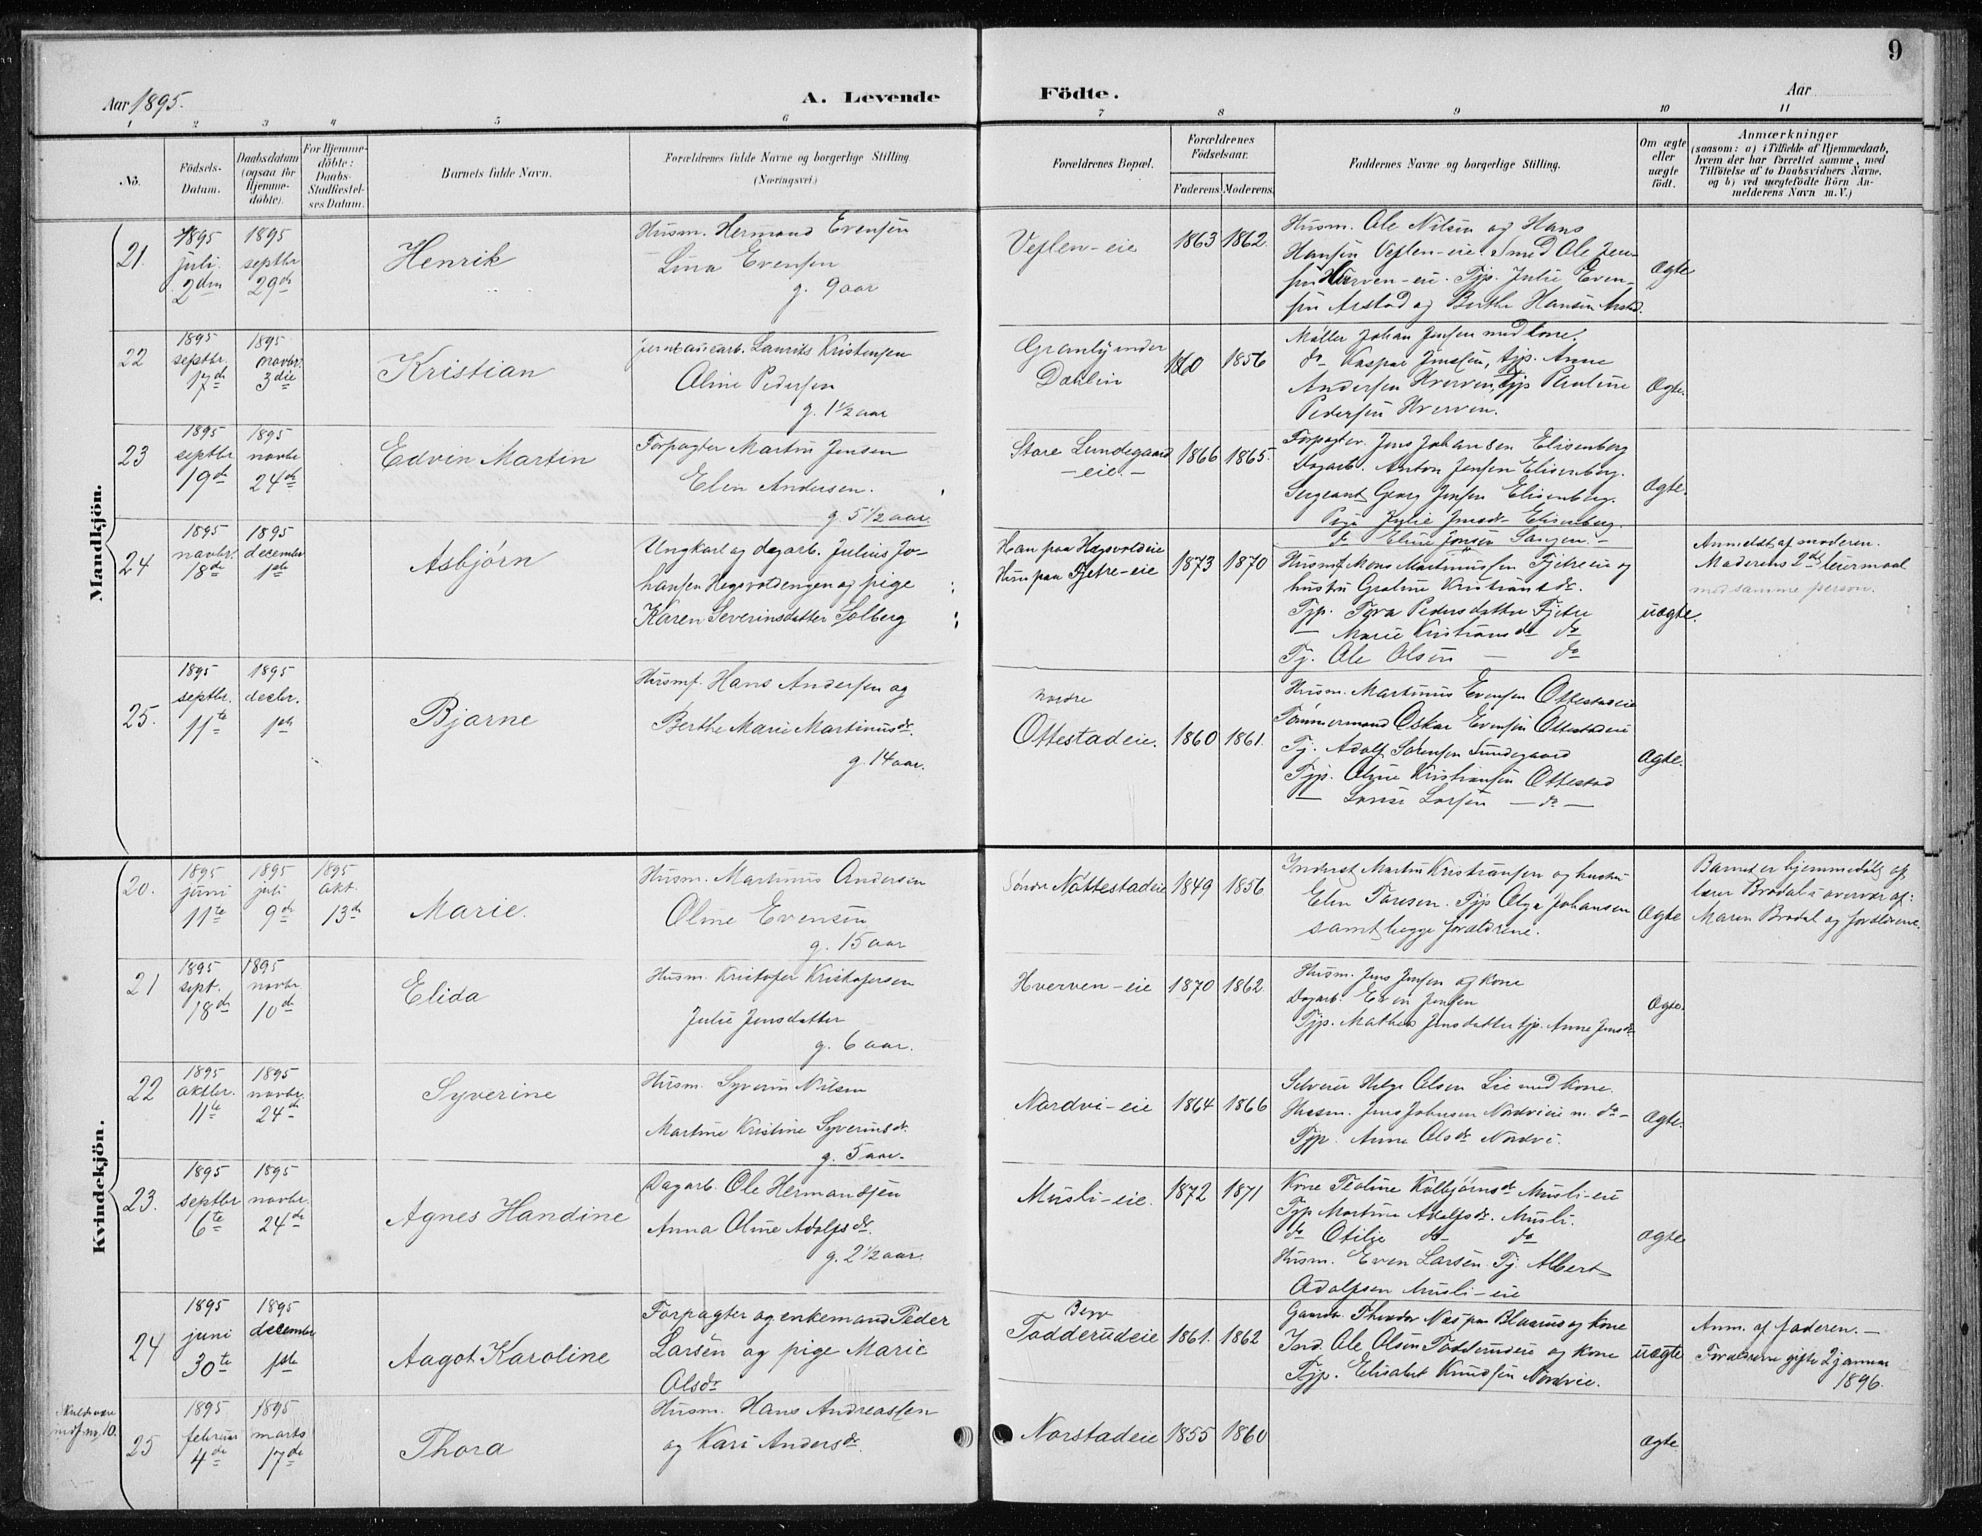 9
Aar 1895.
A. Levende Födte.
Aar
1 2 3 4 5 6 7 8 9 10 11
No.
Födsels-Datum.
Daabsdatum (ogsaa for Hjemmedöbte).
For Hjemmedöbte: Daabs-Stadfæstelses Datum.
Barnets fulde Navn.
Forældrenes fulde Navne og borgerlige Stilling (Næringsvei.)
Forældrenes Bopæl.
Forældrenes Födselsaar.
Faderens. Moderens.
Faddernes Navne og borgerlige Stilling.
Om ægte eller uægte födt.
Anmærkninger
(saasom: a) i Tilfælde af Hjemmedaab,
hvem der har forrettet samme, med
Tilföielse af to Daabsvidners Navne,
og b) ved uægtefödte Börn Anmelderens Navn m. V.)
Mandkjön.
21.
1895 juli 2den
1895 septbr 29de
Henrik
Husm. Hermand Evensen
Lina Evensen
g. 9 aar
Veflen-eie
1863 1862.
Husm. Ole Nilsen og Hans
Hansen Veflen-eie. Smed Ole Jen-
sen Hverven-eie. Tjp. Julie Even-
sen Arstad og Berthe Hansen Arstad.
Ægte
22
1895 septbr. 17de
1895 novbr. 3die
Kristian
Laurits Kristensen
Oline Pedersen
g. 1½ aar
Granly under
Dæhlin
1860 1856
Møller Johan Jensen med kone,
do Kaspar Jensen, tjp. Anne
Andersen Hverven, tjp Pauline
Pedersen Hverven.
Ægte.
23
1895 septbr 19de
1895 novbr 24de
Edvin Martin
Forpagter Martin Jensen
Elen Andersen.
g. 5½ aar.
Store Lundegaard
-eie-
1866 1865.
Forpagter Jens Johansen Elisenberg
Dagarb. Anton Jensen Elisenberg.
Sergeant Georg Jensen Elisenberg.
Pige Julie Jensdr Elisenberg.
do Eline Jensen
Ægte.
24
1895 novbr. 18de
1895 december 1ste
Asbjørn
Ungkarl og dagarb. Julius Jo-
hansen Hegsvoldengen og pige
Karen Severinsdatter Solberg
Han paa Hegsvoldeie
Hun paa Tjetre-eie
1873 1870
Husmf. Mons Martinussen Fjetreeie og
hustru Kristiansdr.
Tjp. Tora Pedersdatter Fjetre
— Marie Kristiansdr do
Tj. Ole Olsen — do
uægte.
Anmeldt af moderen.
Moderens 2det leiermaal
med samme person.
25.
1895 septbr. 11te
1895 decbr. 1ste
Bjarne
Husmf. Hans Andersen og
Berthe Marie Martinusdr.
g. 14 aar.
nordre
Ottestadeie.
1860 1861.
Husm. Martinus Evensen Ottestadeie
Tømmermand Oskar Evensen Ottestadeie
Tj. Adolf Sørensen Lundegaard
Tjp. Oline Kristiansen Ottestad
— Lovise Larsen — do —
Ægte.
Kvindekjön.
20.
1895 juni 11te
1895 juli 9de
1895 okt. 13de
Marie.
Husm. Martinus Andersen
Oline Evensen
g. 15 aar
Søndre Nøttestadeie
1849 1856
Inderst Martin Kristiansen og hustru
Elen Toresen. Tjp Olga Johansen
samt begge forældrene.
Ægte
Barnet er hjemmedøbt af
lærer Brodal i overvær af:
Maren Brodal og forældrene.
21
1895 sept. 18de
1895 novbr 10de
Elida
Husm. Kristofer Kristofersen
Julie Jensdatter
g. 6 aar.
Hverven-eie
1870 1862.
Husm. Jens Jensen og kone
Dagarb. Even Jensen
Tjp. Mathea Jensdatter tjp. Anne Jensdr
Ægte.
22
1895 oktbr. 11te
1895 novbr. 24de
Syverine
Husm. Syverin Nilsen
Martine Kristine Syverinsdr.
g. 5 aar.
Nordvi-eie
1864 1866
Selveier Helge Olsen Lie med kone.
Husm. Jens Johnsen Nordvieie m. do-
Tjp. Anne Olsdr Nordvi.
Ægte.
23.
1895 septbr 6te
1895 novbr. 24de
Agnes Handine
Dagarb. Ole Hermandsen
Anna Oline Adolfsdr.
g. 2½ aar.
Musli-eie.
1872 1871
Kone Teoline Kolbjørnsdr Musli-eie
Tjp Martine Adolfsdr. Musli.
do Otilie do do
Husm. Even Larsen. Tj. Albert
Adolfsen Musli-eie
ægte
24
1895 juni 30te
1895 december 1ste
Aagot Karoline
Forpagter og enkemand Peder
Larsen og pige Marie
Olsdr
Berg
Fodderudeie
1861. 1862
Gaardr. Theodor Næs paa Blaarud og kone
Ind. Ole Olsen Fodderudeie og kone
Tjp. Elisabet Knudsen Nordvie.
uægte
Anm. af faderen. —
Forældrene gifte 2 januar
1896.
Skulde være
indf. no, 10.
25
1895 februar 4de
1895 marts 17de
Thora
Husm. Hans Andreassen
og Kari Andersdr.
Norstadeie
1855 1860
ægte